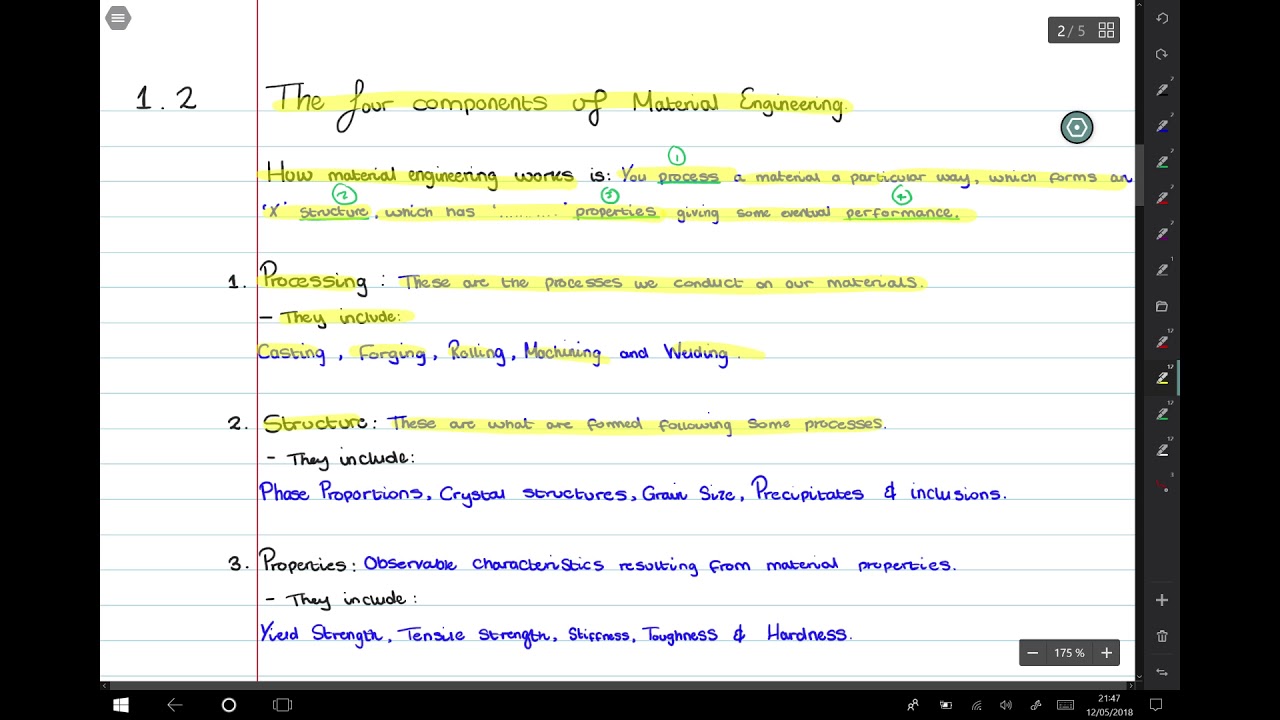 2 / 5
1.2 The four components of Material Engineering.
①
How material engineering works is: You process a material a particular way, which forms an
② ③ ④
'X' structure, which has '..........' properties giving some eventual performance.
1. Processing: These are the processes we conduct on our materials.
- They include:
Casting, Forging, Rolling, Machining and Welding.
2. Structure: These are what are formed following some processes.
- They include:
Phase Proportions, Crystal structures, Grain Size, Precipitates & inclusions.
3. Properties: Observable characteristics resulting from material properties.
- They include:
Yield Strength, Tensile strength, Stiffness, Toughness & Hardness.
175 %
21:47
12/05/2018